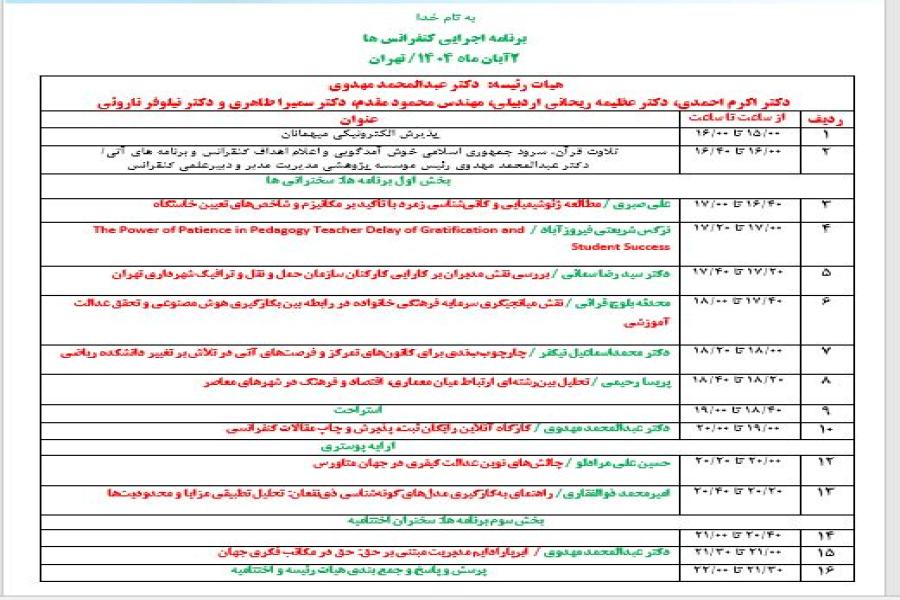 به نام خدا
برنامه اجرایی کنفرانس ها
۲آبان ماه ۱۴۰۴/ تهران
هیات رئیسه: دکتر عبدالمحمد مهدوی
دکتر اکرم احمدی، دکتر عظیمه ریحانی اردبیلی، مهندس محمود مقدم، دکتر سمیرا طاهری و دکتر نیلوفر نارونی
ردیف از ساعت تا ساعت عنوان
۱ ۱۵/۰۰ تا ۱۶/۰۰ پذیرش الکترونیکی میهمانان
۲ ۱۶/۰۰ تا ۱۶/۴۰ تلاوت قرآن، سرود جمهوری اسلامی خوش آمدگویی و اعلام اهداف کنفرانس و برنامه های آتی/
دکتر عبدالمحمد مهدوی رئیس موسسه پژوهشی مدیریت مدبر و دبیرعلمی کنفرانس
بخش اول برنامه ها: سخنرانی ها
۳ ۱۶/۴۰ تا ۱۷/۰۰ علی صبری / مطالعه ژئوشیمیایی و کانی‌شناسی زمرد با تاکید بر مکانیزم و شاخص‌های تعیین خاستگاه
۴ ۱۷/۰۰ تا ۱۷/۲۰ نرگس شریعتی فیروزآباد / The Power of Patience in Pedagogy Teacher Delay of Gratification and
Student Success
۵ ۱۷/۲۰ تا ۱۷/۴۰ دکتر سید رضا سمائی / بررسی نقش مدیران بر کارایی کارکنان سازمان حمل و نقل و ترافیک شهرداری تهران
۶ ۱۷/۴۰ تا ۱۸/۰۰ محدثه بلوچ قرائی / نقش میانجیگری سرمایه فرهنگی خانواده در رابطه بین بکارگیری هوش مصنوعی و تحقق عدالت
آموزشی
۷ ۱۸/۰۰ تا ۱۸/۲۰ دکتر محمداسماعیل نیکفر / چارچوب‌بندی برای کانون‌های تمرکز و فرصت‌های آتی در تلاش بر تغییر دانشکده ریاضی
۸ ۱۸/۲۰ تا ۱۸/۴۰ پریسا رحیمی / تحلیل بین‌رشته‌ای ارتباط میان معماری، اقتصاد و فرهنگ در شهرهای معاصر
۹ ۱۸/۴۰ تا ۱۹/۰۰ استراحت
۱۰ ۱۹/۰۰ تا ۲۰/۰۰ دکتر عبدالمحمد مهدوی / کارگاه آنلاین رایگان ثبت، پذیرش و چاپ مقالات کنفرانسی
ارایه پوستری
۱۲ ۲۰/۰۰ تا ۲۰/۲۰ حسین علی مرادلو / چالش‌های نوین عدالت کیفری در جهان متاورس
۱۳ ۲۰/۲۰ تا ۲۰/۴۰ امیرمحمد ذوالفقاری / راهنمای به‌کارگیری مدل‌های گونه‌شناسی ذی‌نفعان: تحلیل تطبیقی مزایا و محدودیت‌ها
بخش سوم برنامه ها: سخنران اختتامیه
۱۴ ۲۰/۴۰ تا ۲۱/۰۰
۱۵ ۲۱/۰۰ تا ۲۱/۳۰ دکتر عبدالمحمد مهدوی / ابرپارادایم مدیریت مبتنی بر حق: حق در مکاتب فکری جهان
۱۶ ۲۱/۳۰ تا ۲۲/۰۰ پرسش و پاسخ و جمع بندی هیات رئیسه و اختتامیه